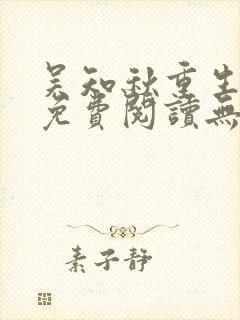 吴知秋重生
免費閱讀無
素子静